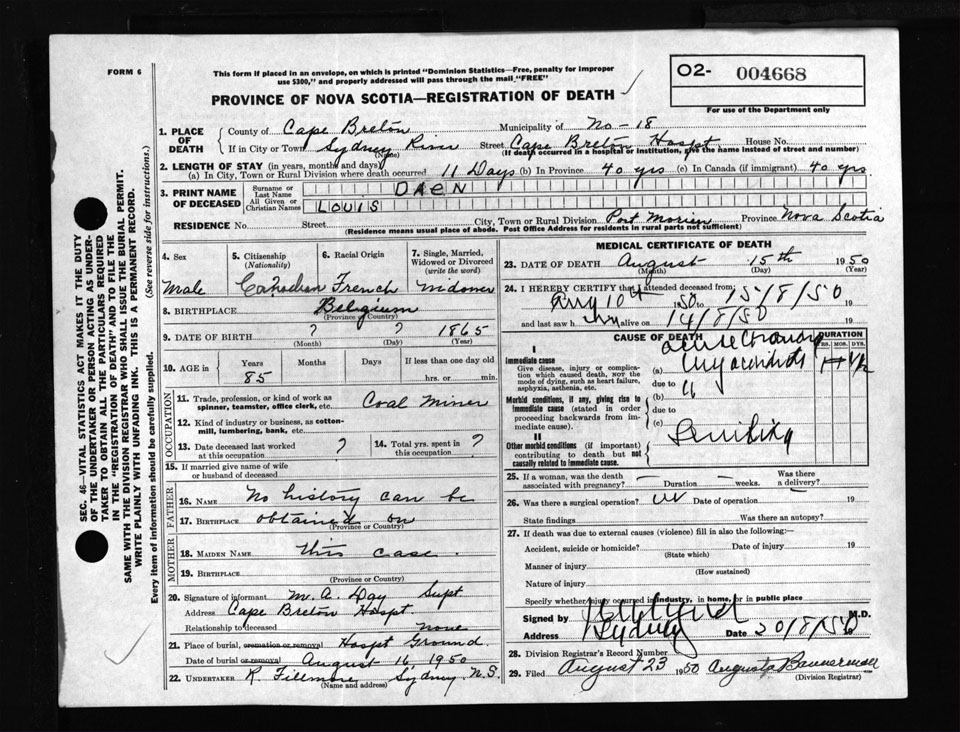 FORM 6
This form if placed in an envelope, on which is printed "Dominion Statistics—Free, penalty for improper
use $300," and properly addressed will pass through the mail "FREE"
O2- 004668
For use of the Department only
PROVINCE OF NOVA SCOTIA—REGISTRATION OF DEATH
1. PLACE OF DEATH
County of Cape Breton Municipality of No-18
If in City or Town Sydney River Street Cape Breton Hospt House No.
(Name) (If death occurred in a hospital or institution, give the name instead of street and number)
2. LENGTH OF STAY (in years, months and days)
(a) In City, Town or Rural Division where death occurred 11 Days (b) In Province 40 yrs (c) In Canada (if immigrant) 40 yrs.
3. PRINT NAME OF DECEASED
Surname or Last Name DAEN
All Given or Christian Names LOUIS
RESIDENCE No. Street City, Town or Rural Division Port Morien Province Nova Scotia
(Residence means usual place of abode. Post Office Address for residents in rural parts not sufficient)
4. Sex 5. Citizenship (Nationality) 6. Racial Origin 7. Single, Married, Widowed or Divorced (write the word)
Male Canadian French Widower
8. BIRTHPLACE Belgium
(Province or Country)
9. DATE OF BIRTH ? ? 1865
(Month) (Day) (Year)
10. AGE in Years Months Days If less than one day old
85 hrs. or min.
OCCUPATION
11. Trade, profession, or kind of work as
spinner, teamster, office clerk, etc. Coal Miner
12. Kind of industry or business, as cotton-
mill, lumbering, bank, etc.
13. Date deceased last worked at this occupation ? 14. Total yrs. spent in this occupation ?
15. If married give name of wife
or husband of deceased
FATHER
16. NAME No history can be
17. BIRTHPLACE obtained on
(Province or Country)
MOTHER
18. MAIDEN NAME this case.
19. BIRTHPLACE
(Province or Country)
20. Signature of informant M. A. Day Supt
Address Cape Breton Hospt
Relationship to deceased none
21. Place of burial, cremation or removal Hospt Ground.
Date of burial or removal August 16, 1950
22. UNDERTAKER R. Fillmore Sydney N.S.
(Name and address)
MEDICAL CERTIFICATE OF DEATH
23. DATE OF DEATH August 15th 1950
(Month) (Day) (Year)
24. I HEREBY CERTIFY that I attended deceased from:
Aug 10th 50 to 15/8/50 19
and last saw him alive on 14/8/50 19
CAUSE OF DEATH DURATION
YRS. MOS. DYS.
I
Immediate cause
Give disease, injury or complica-
tion which caused death, NOT the
mode of dying, such as heart failure,
asphyxia, asthenia, etc.
(a)
due to
Morbid conditions, if any, giving rise to
immediate cause (stated in order
proceeding backwards from im-
mediate cause).
(b)
due to
(c)
II
Other morbid conditions (if important)
contributing to death but not
causally related to immediate cause.
25. If a woman, was the death
associated with pregnancy? Duration weeks. Was there a delivery?
26. Was there a surgical operation? Date of operation 19
State findings Was there an autopsy?
27. If death was due to external causes (violence) fill in also the following:
Accident, suicide or homicide? Date of injury 19
(State which)
Manner of injury
(How sustained)
Nature of injury
Specify whether injury occurred in industry, in home, or in public place
Signed by M.D.
Address Sydney Date 20/8/50 19
28. Division Registrar's Record Number
29. Filed August 23 1950 Augusta Bannerman
(Division Registrar)
SEC. 46—VITAL STATISTICS ACT MAKES IT THE DUTY
OF THE UNDERTAKER OR PERSON ACTING AS UNDER-
TAKER TO OBTAIN ALL THE PARTICULARS REQUIRED
IN THE "REGISTRATION OF DEATH" AND TO FILE THE
SAME WITH THE DIVISION REGISTRAR WHO SHALL ISSUE THE BURIAL PERMIT.
WRITE PLAINLY WITH UNFADING INK. THIS IS A PERMANENT RECORD.
Every item of information should be carefully supplied. (See reverse side for instructions.)